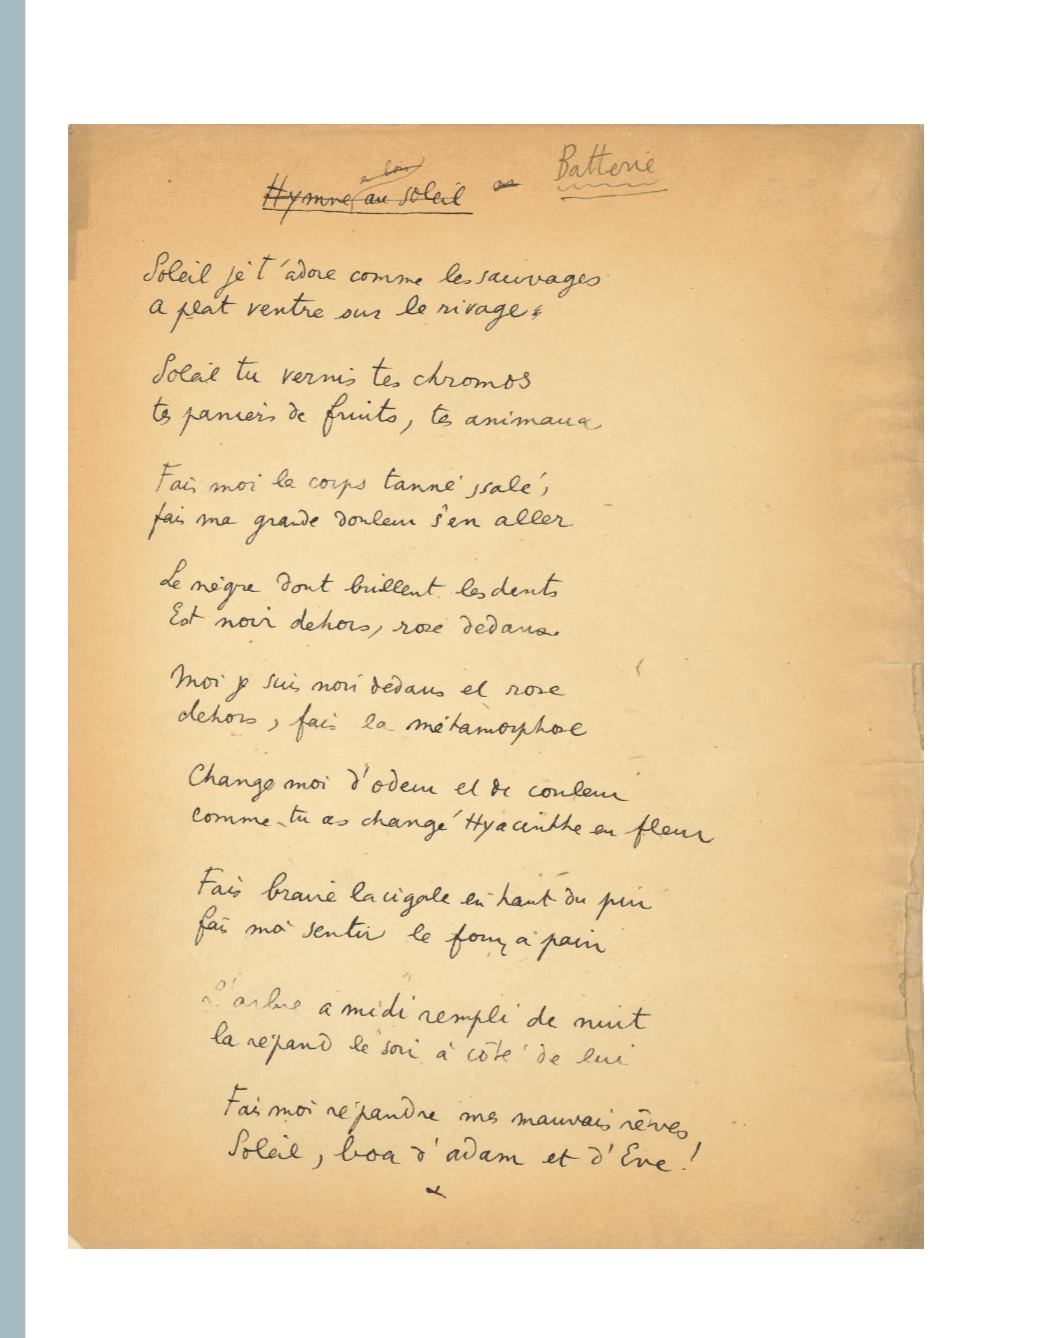 Hymne au soleil
Batterie
Soleil je t'adore comme les sauvages
a plat ventre sur le rivage
Soleil tu vernis tes chromos
tes paniers de fruits, tes animaux
Fais moi le corps tanné, salé,
fais ma grande douleur s'en aller
Le nègre dont brillent les dents
Est noir dehors, rose dedans.
Moi je suis noir dedans et rose
dehors, fais la métamorphose
Change moi d'odeur et de couleur
comme tu as changé Hyacinthe en fleur
Fais braire la cigale en haut du pin
fais moi sentir le four à pain
L'arbre a midi rempli de nuit
la répand le soir à côté de lui
Fais moi répandre mes mauvais rêves
Soleil, boa d'adam et d'Eve !